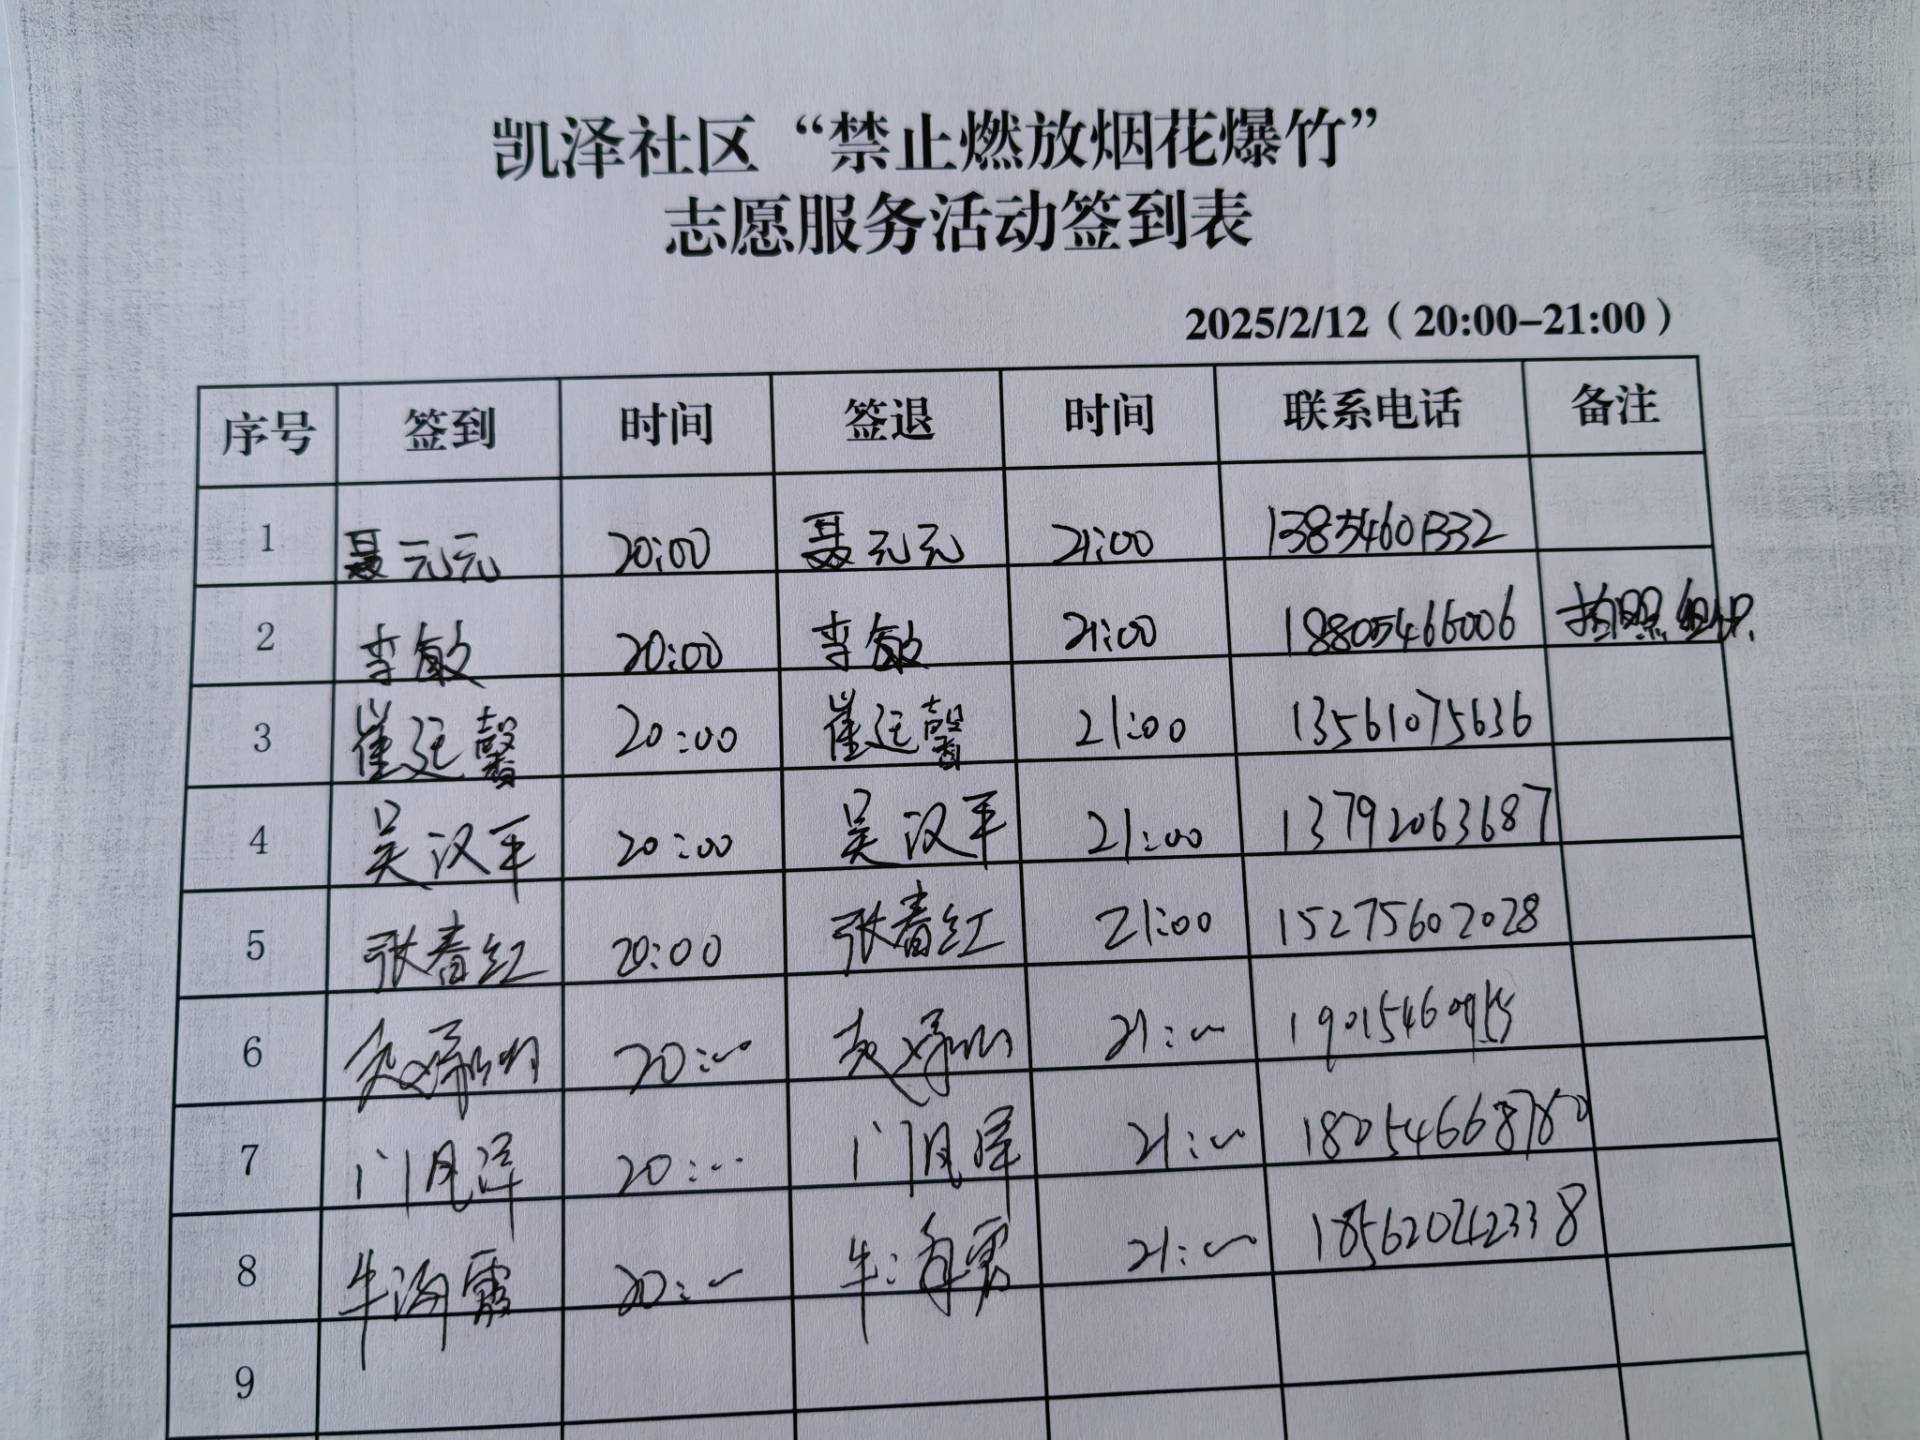 凯泽社区“禁止燃放烟花爆竹”
志愿服务活动签到表
2025/2/12（20:00–21:00）
序号 签到 时间 签退 时间 联系电话 备注
1 聂元元 20:00 聂元元 21:00 13854601332
2 李敏 20:00 李敏 21:00 18805466006 拍照 组织
3 崔廷馨 20:00 崔廷馨 21:00 13561075636
4 吴汉平 20:00 吴汉平 21:00 13792063687
5 张春红 20:00 张春红 21:00 15275602028
6 20:00 21:00
7 门凤泽 20:00 门凤泽 21:00
8 牛海霞 20:00 牛海霞 21:00 18562042338
9